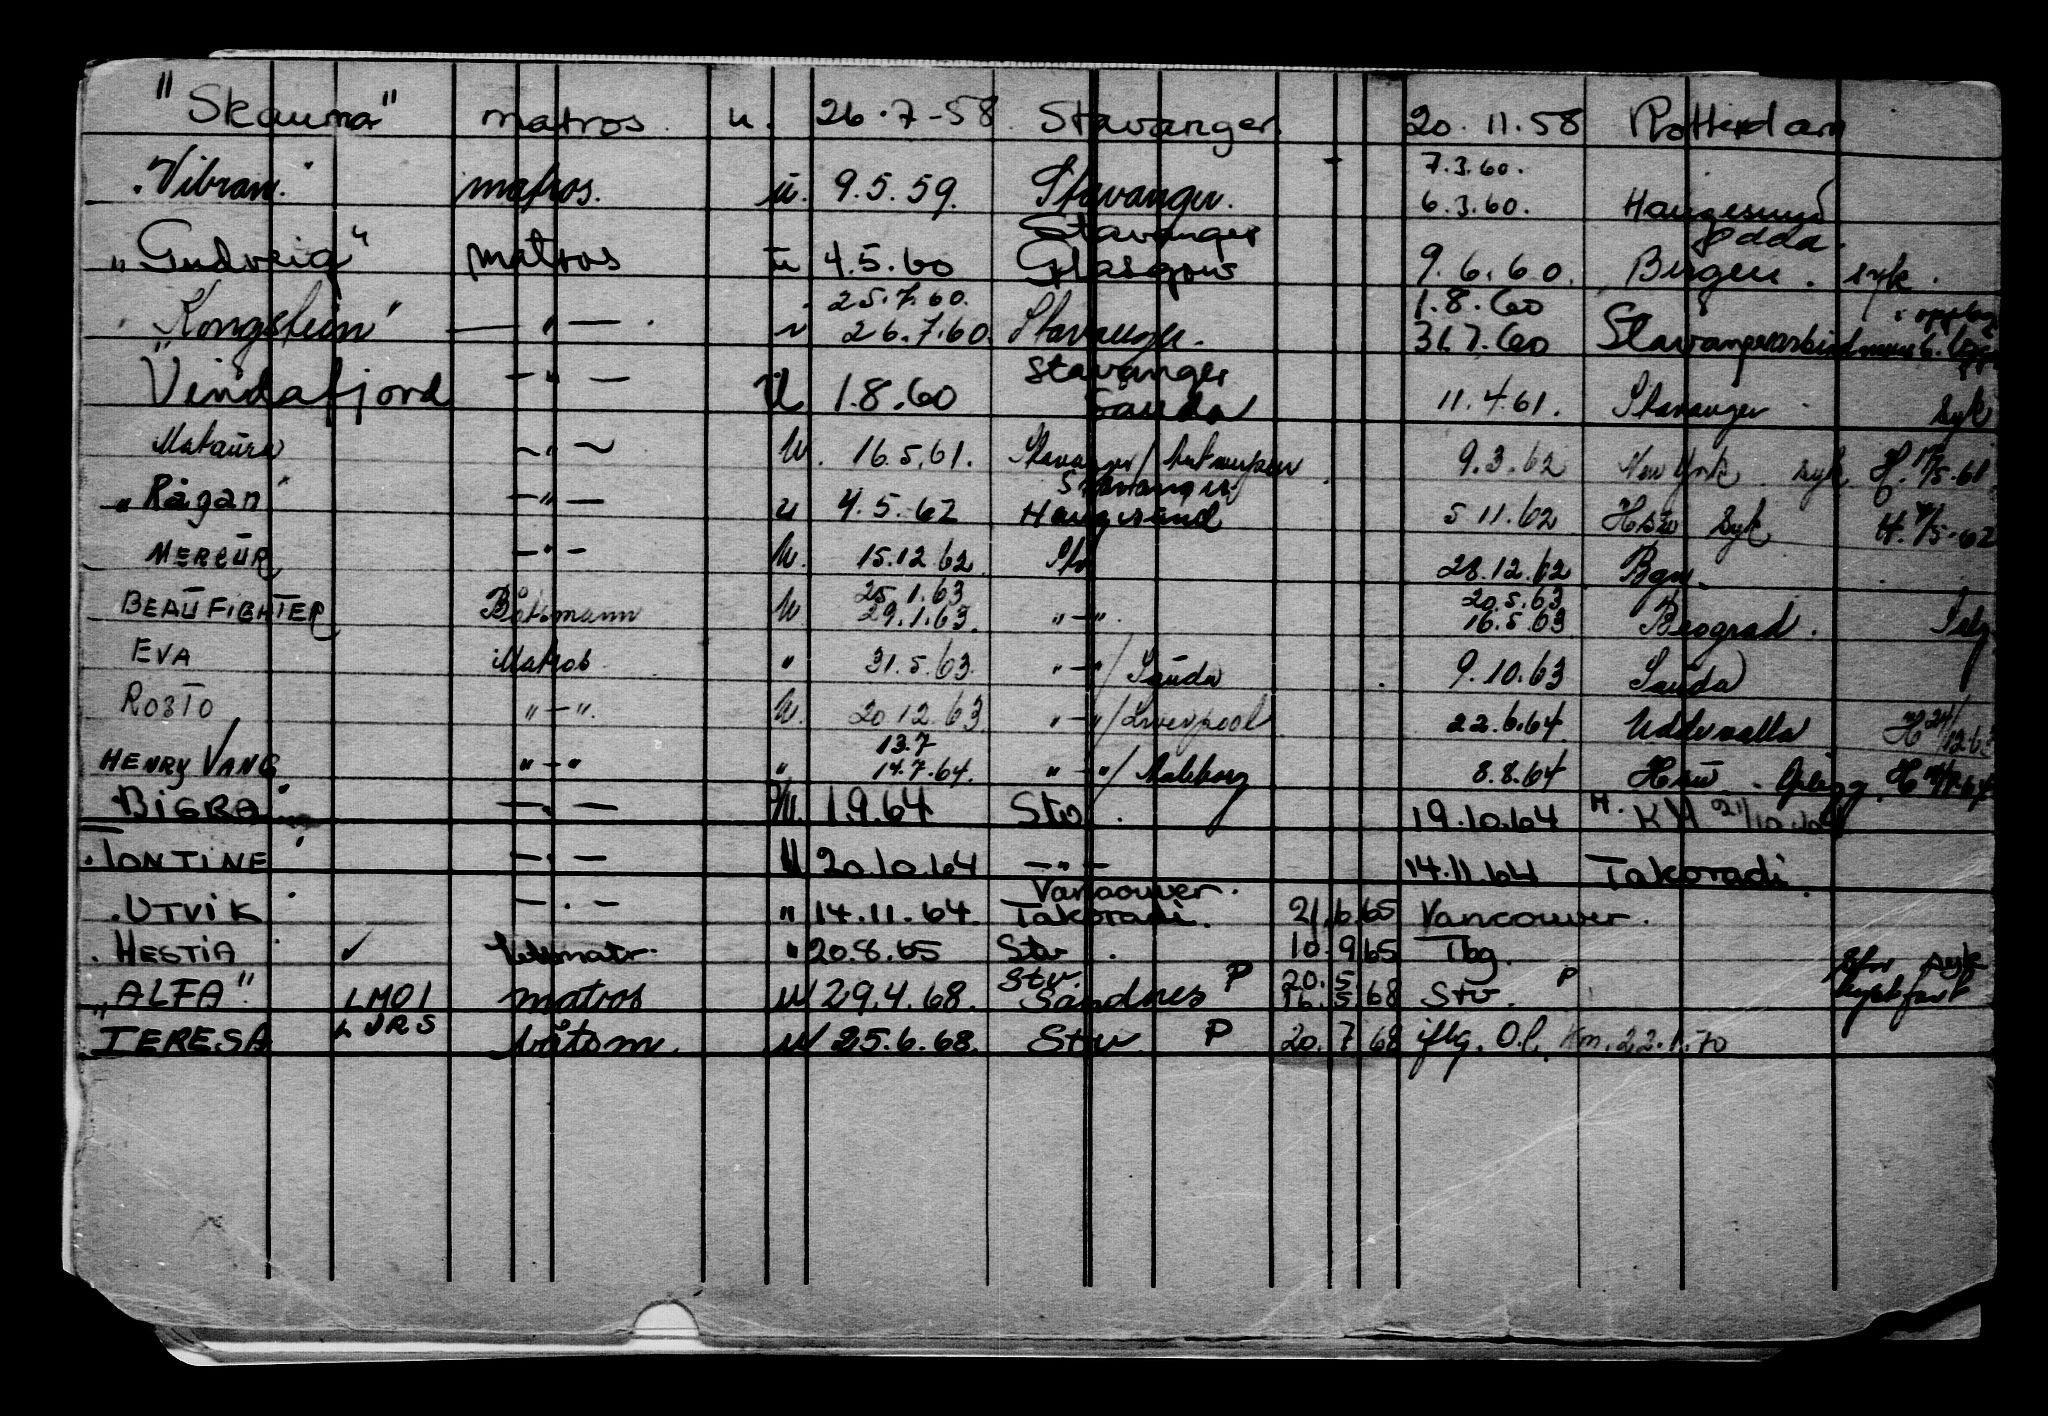 "Skauma" matros. u. 26.7-58 Stavanger. 20.11.58 Rotterdam
7.3.60.
"Vibran." matros. u. 9.5.59. Stavanger. 6.3.60. Haugesund
Stavanger Odda.
"Gudveig" matros u 4.5.60 Glasgow 9.6.60. Bergen. syk.
25.7.60. 1.8.60
"Kongstein" — " — . u 26.7.60. Stavanger. 31.7.60 Stavanger
Stavanger
Vindafjord — " — u 1.8.60 Sauda 11.4.61. Stavanger syk
Mataura — " — u. 16.5.61. Stavanger / Antwerpen 9.3.62 New York syk H. 17/5-61
Stavanger
"Rågan" — " — u 4.5.62 Haugesund 5 11.62 Hsw syk H. 4/5-62
MERCUR — " — u. 15.12.62 Stv 28.12.62 Bgn.
25.1.63 20.5.63
BEAUFIGHTER Båtsmann u 29.1.63. " — ". 16.5.63 Beograd.
EVA Matros " 31.5.63. " — " / Sauda 9.10.63 Sauda
ROSTO " — ". u. 20 12.63 " — " / Liverpool 22.6.64. Uddevalla H 24/12-63
13.7
HENRY VANG " — " " 14.7.64. " — " / Aalborg 8.8.64 Hsw.
"BIGRA" — " — u. 1.9.64 Stv. 19.10.64 H. KH 21/10.64
"TONTINE" — " — u 20.10.64 — " — 14.11.64 Takoradi.
Vancouver.
"UTVIK" — " — " 14.11.64. Takoradi. 21.6.65 Vancouver.
"HESTIA ✓ matr. " 20.8.65 Stv. 10.9.65 Tbg.
Stv. 20.5 syk
"ALFA" LMOI matros u 29.4.68. Sandnes P 16.5.68 Stv. P
TERESA LJRS båtsm. u 25.6.68. Stv P 20.7.68 iflg. O.l. Km. 22.1.70